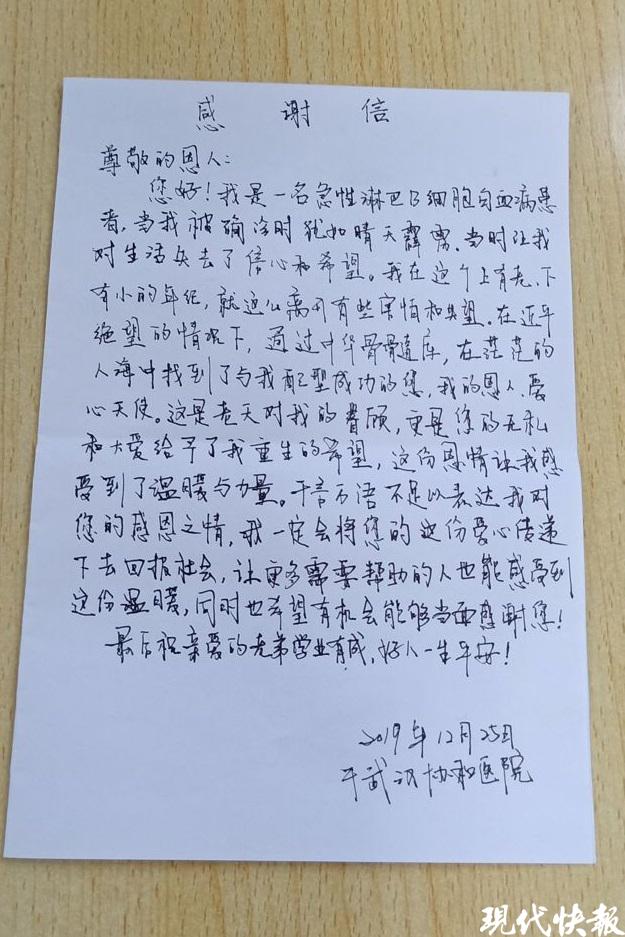 感谢信
尊敬的恩人:
您好!我是一名急性淋巴B细胞白血病患
者,当我被确诊时犹如晴天霹雳,当时让我
对生活失去了信心和希望。我在这个上有老、下
有小的年纪,就这么离开有些害怕和失望。在近乎
绝望的情况下,通过中华骨髓库,在茫茫的
人海中找到了与我配型成功的您,我的恩人、爱
心天使。这是老天对我的眷顾,更是您的无私
和大爱给予了我重生的希望,这份恩情让我感
受到了温暖与力量。千言万语不足以表达我对
您的感恩之情,我一定会将您的这份爱心传递
下去回报社会,让更多需要帮助的人也能感受到
这份温暖,同时也希望有机会能够当面感谢您!
最后祝亲爱的兄弟学业有成,好人一生平安!
2019年12月25日
于武汉协和医院
现代快报